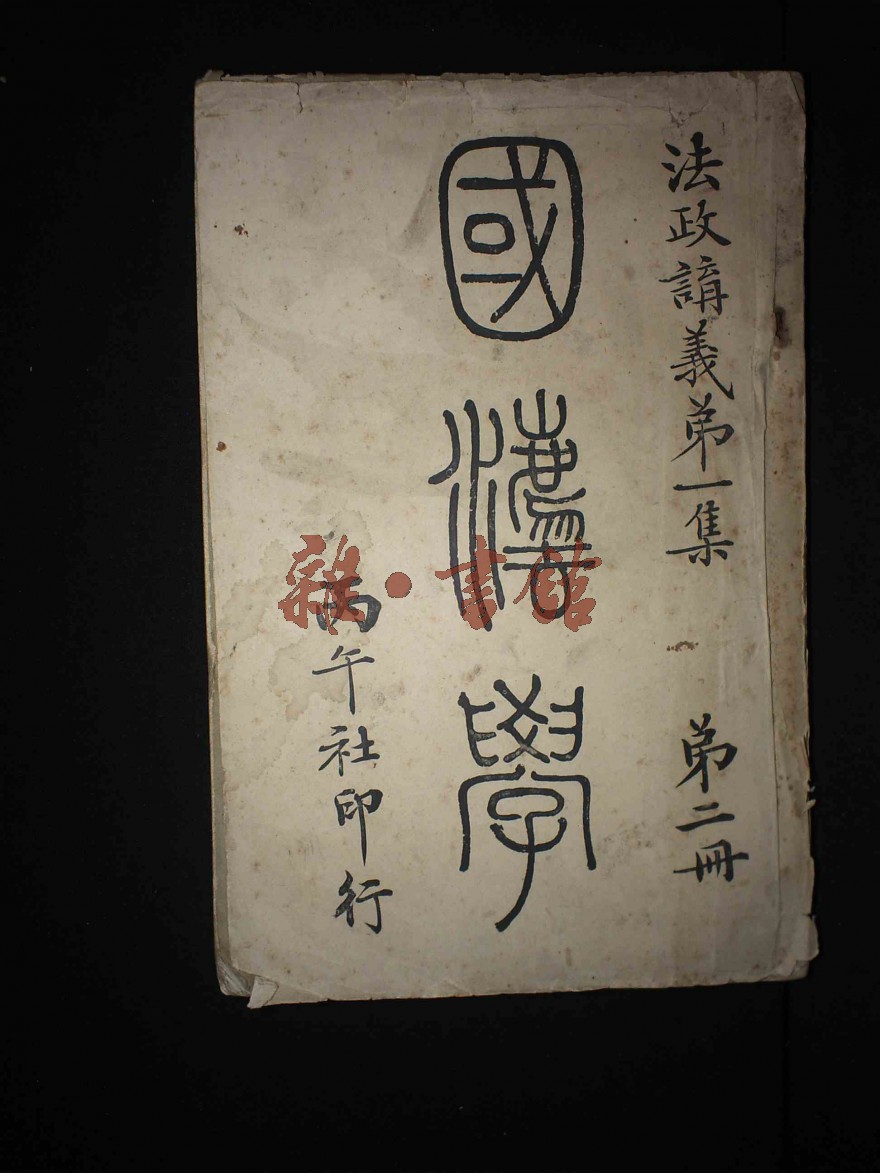 法政講義弟一集 弟二冊
國灋學
丙午社印行
雜·書館